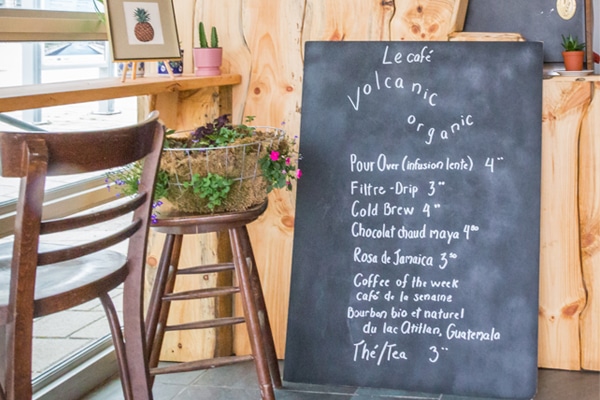 Le café
Volcanic
organic
Pour Over (infusion lente) 4"
Filtre-Drip 3"
Cold Brew 4"
Chocolat chaud maya 4⁰⁰
Rosa de Jamaica 3⁵⁰
Coffee of the week
café de la semaine
Bourbon bio et naturel
du lac Atitlan, Guatemala
Thé/Tea 3"